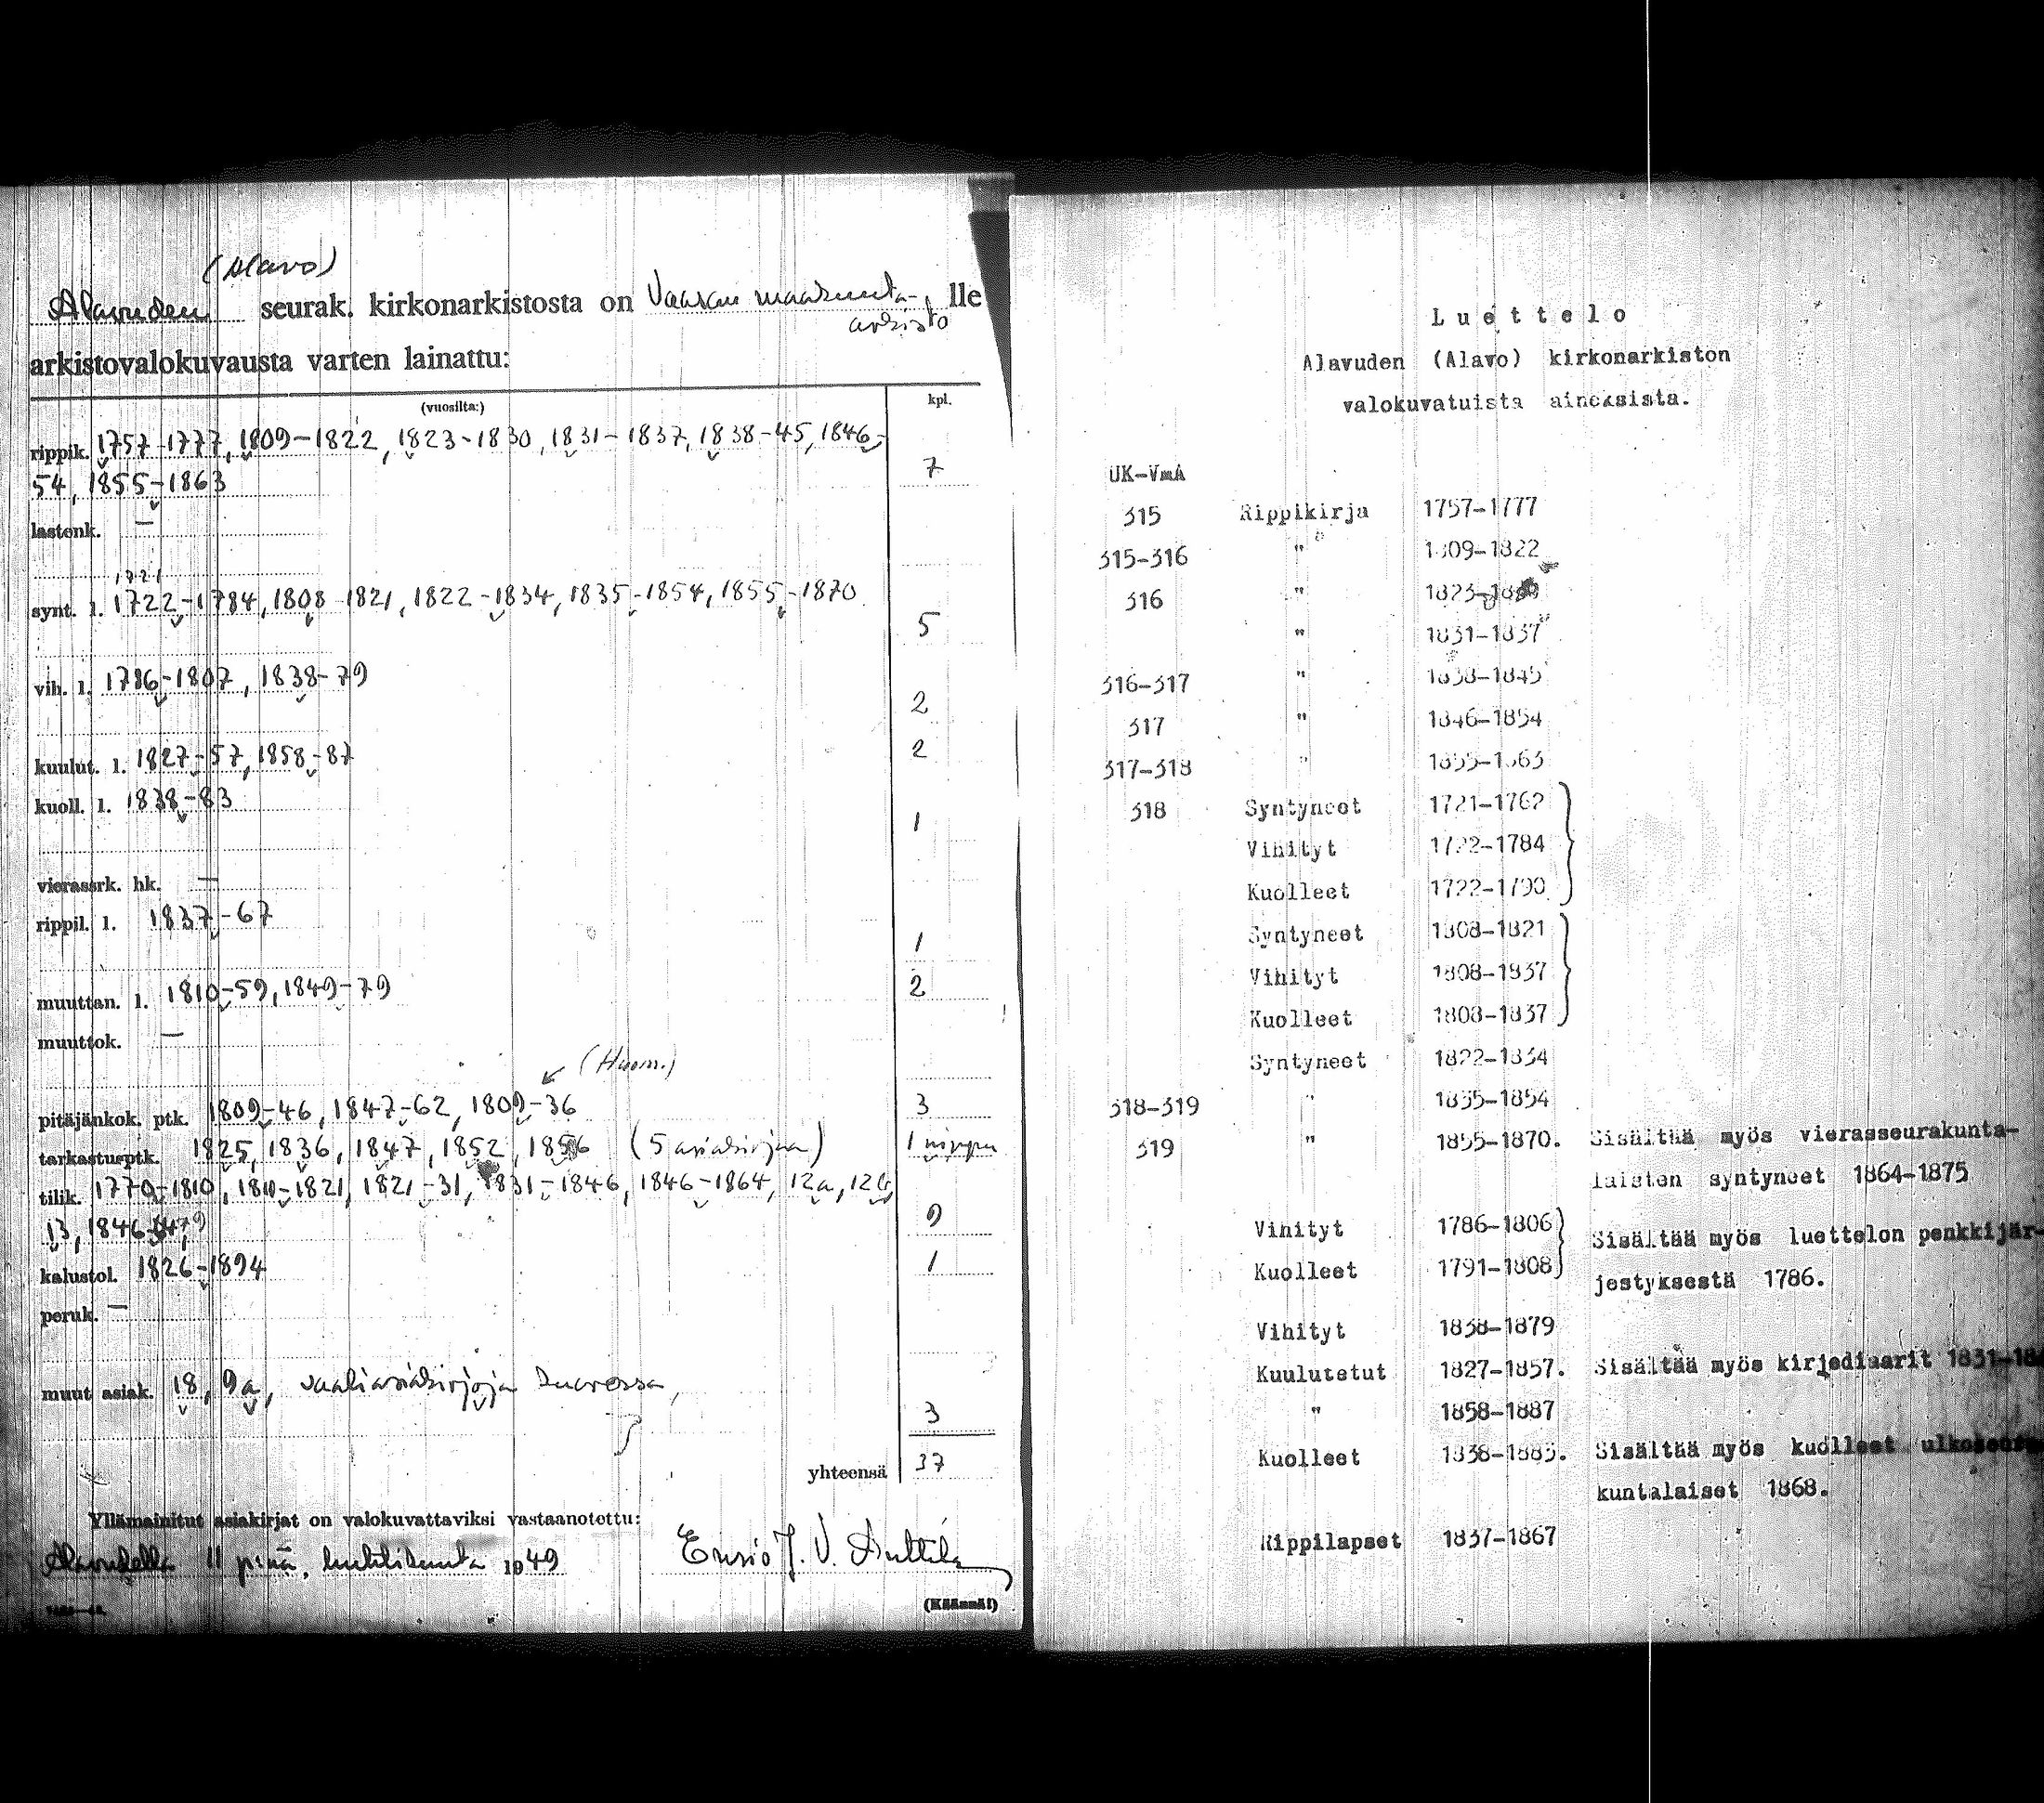 (Alavo)
Alavuden seurak. kirkonarkistosta on Vaasan maakunta-, lle
arkisto
arkistovalokuvausta varten lainattu:
(vuosilta:) kpl.
rippik. 1757-1777, 1809-1822, 1823-1830, 1831-1837, 1838-45, 1846-
54, 1855-1863 7
lastenk. —
1721
synt. l. 1722-1784, 1808-1821, 1822-1834, 1835-1854, 1855-1870
5
vih. l. 1786-1807, 1838-79
2
kuulut. l. 1827-57, 1858-87 2
kuoll. l. 1838-83
1
vierassrk. hk. —
rippil. l. 1837-67
1
muuttan. l. 1810-59, 1849-79 2
muuttok. —
(Huom.)
pitäjänkok. ptk. 1809-46, 1847-62, 1809-36 3
tarkastusptk. 1825, 1836, 1847, 1852, 1856 (5 asiakirjaa) 1 nippu
tilik. 1770-1810, 1810-1821, 1821-31, 1831-1846, 1846-1864, 12a, 12b,
13, 1846- 9
kalustol. 1826-1894 1
peruk. —
muut asiak. 18, 9a, vaaliasiakirjoja
3
yhteensä 37
Yllämainitut asiakirjat on valokuvattaviksi vastaanotettu:
Alavudella 11 p:nä, huhtikuuta 1949 Ensio J. V. Anttila
(Käännä!)
Luettelo
Alavuden (Alavo) kirkonarkiston
valokuvatuista aineksista.
UK-VmA
315 Rippikirja 1757-1777
315-316 " 1809-1822
316 " 1823-1830
" 1831-1837
316-317 " 1838-1845
317 " 1846-1854
317-318 " 1855-1863
318 Syntyneet 1721-1762
Vihityt 1722-1784
Kuolleet 1722-1790
Syntyneet 1808-1821
Vihityt 1808-1837
Kuolleet 1808-1837
Syntyneet 1822-1834
318-319 " 1835-1854
319 " 1855-1870. Sisältää myös vierasseurakunta-
laisten syntyneet 1864-1875
Vihityt 1786-1806 Sisältää myös luettelon penkkijär-
Kuolleet 1791-1808 jestyksestä 1786.
Vihityt 1838-1879
Kuulutetut 1827-1857. Sisältää myös kirjediaarit
" 1858-1887
Kuolleet 1838-1883. Sisältää myös kuolleet
kuntalaiset 1868.
Rippilapset 1837-1867